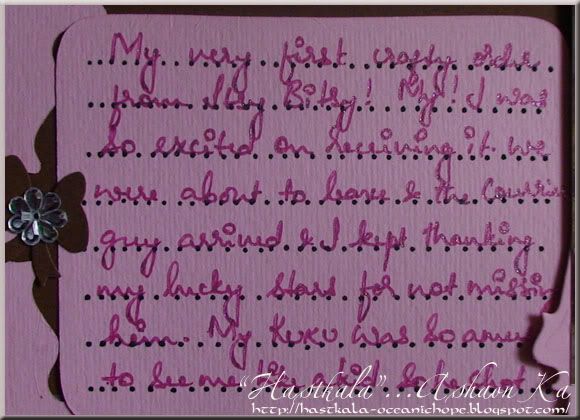 My very first crafty order
from Itsy Bitsy! Myy! I was
so excited on receiving it. we
were about to leave & the Courrier
guy arrived & I kept thanking
my lucky stars for not missin
him. My KUKU was so amu
to see me like a kid so he shot
"Hastkala"...Ashwn Ka
http://hastkala-oceanichope.blogspot.com/